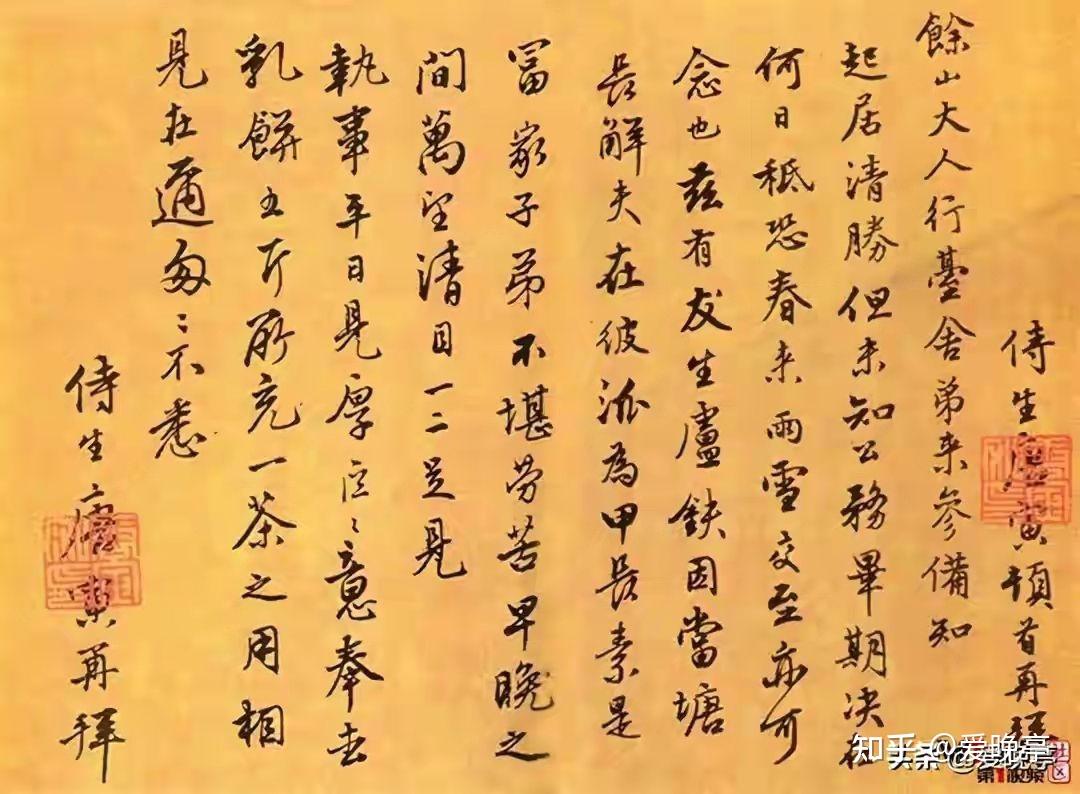 侍生唐寅頓首再拜
餘山大人行臺舍弟来參備知
起居清勝但未知公務畢期决在
何日秪恐春来雨雪交至亦可
念也兹有友生盧鈇因當塘
長解夫在彼泒為甲長素是
冨家子弟不堪劳苦早晚之
間萬望清目一二足見
執事平日見厚區〻意奉去
乳餅五斤所充一茶之用相
見在邇匆〻不悉
侍生唐寅再拜
知乎 @爱晚亭
头条 @爱晚亭